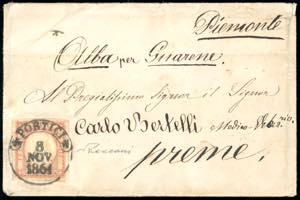 Piemonte
Alba per Guarene.
Al Pregiatissimo Signor il Signor
Carlo Bertelli Medico-
preme.
PORTICI
8
NOV.
1861